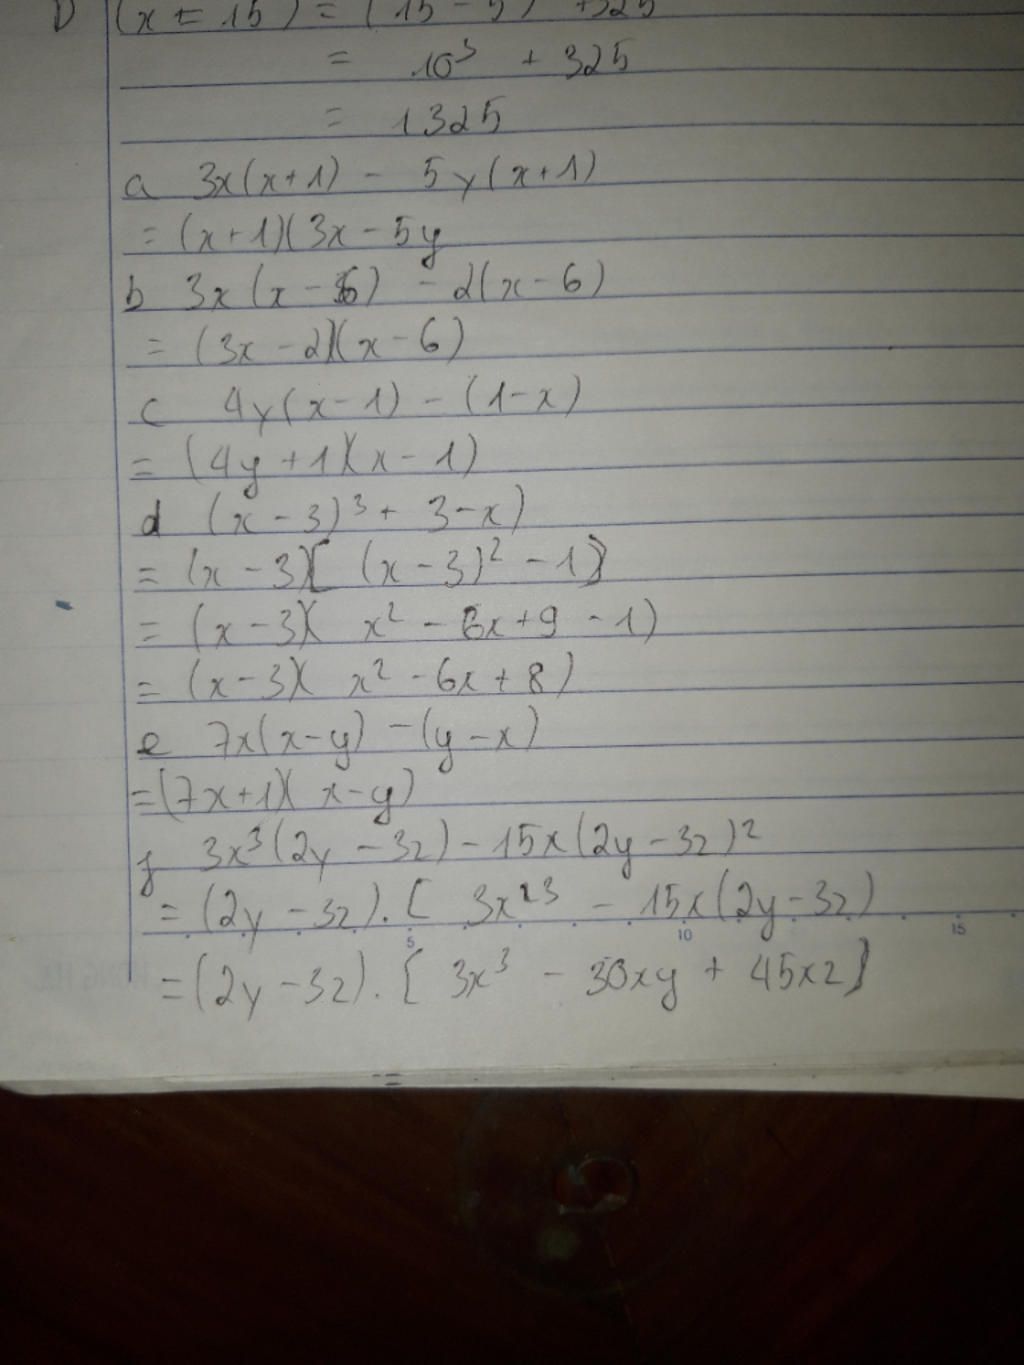 D (x = 15) = (15 - 5)³ + 325
= 10³ + 325
= 1325
a 3x(x+1) - 5y(x+1)
= (x+1)(3x-5y
b 3x(x-6) - 2(x-6)
= (3x-2)(x-6)
c 4y(x-1) - (1-x)
= (4y+1)(x-1)
d (x-3)³ + 3-x)
= (x-3)[(x-3)² - 1]
= (x-3)(x² - 6x+9 - 1)
= (x-3)(x² - 6x + 8)
e 7x(x-y) - (y-x)
= (7x+1)(x-y)
f 3x³(2y-3z) - 15x(2y-3z)²
= (2y-3z).[3x³ - 15x(2y-3z)
5 10 15
= (2y-3z).[3x³ - 30xy + 45xz]
=